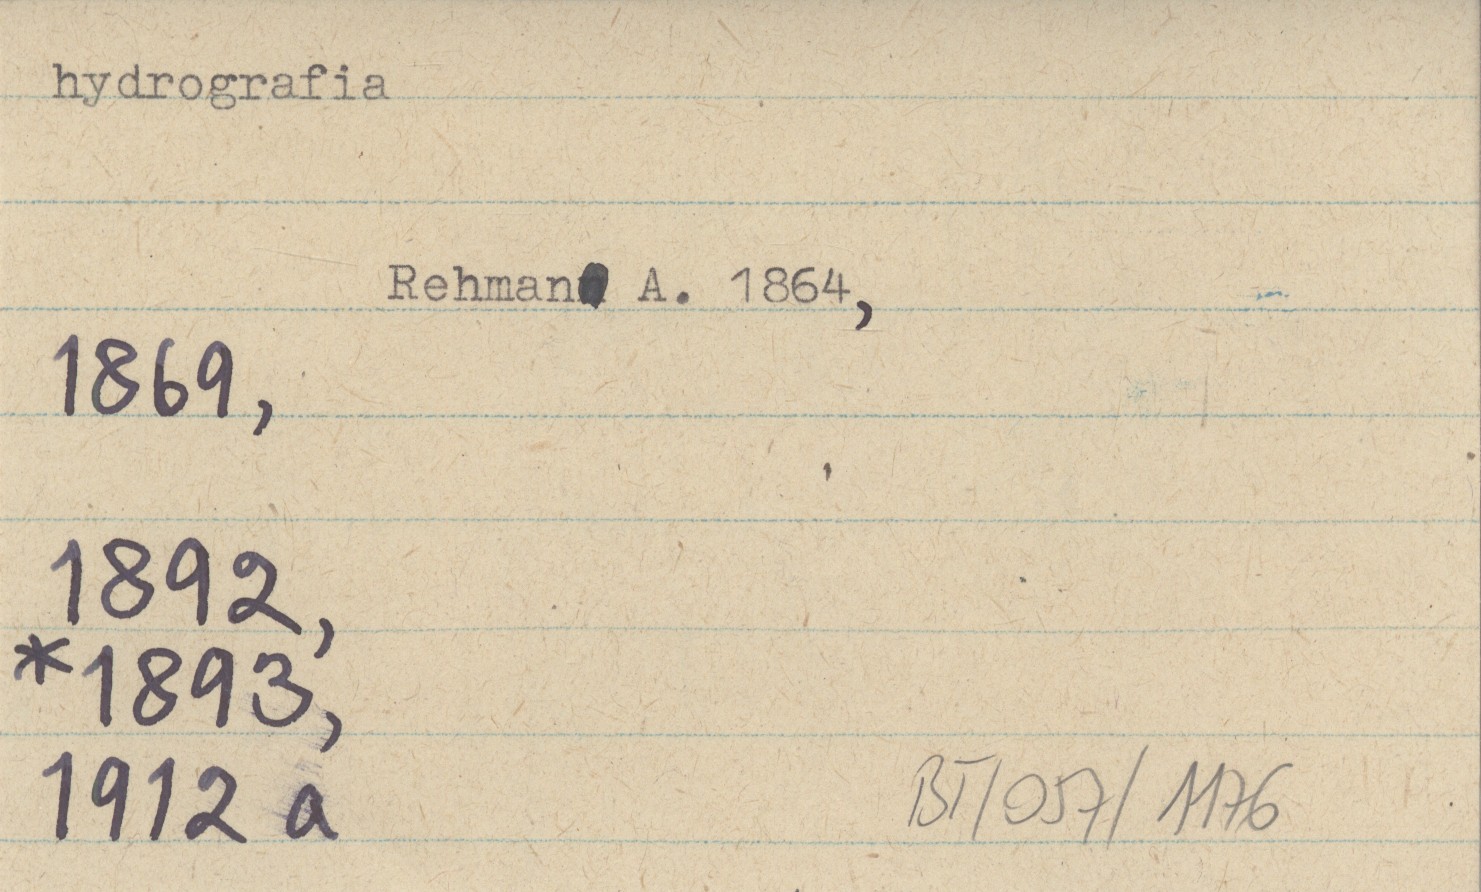 hydrografia
Rehman A. 1864,
1869,
1892,
*1893,
1912 a
BT/057/1176